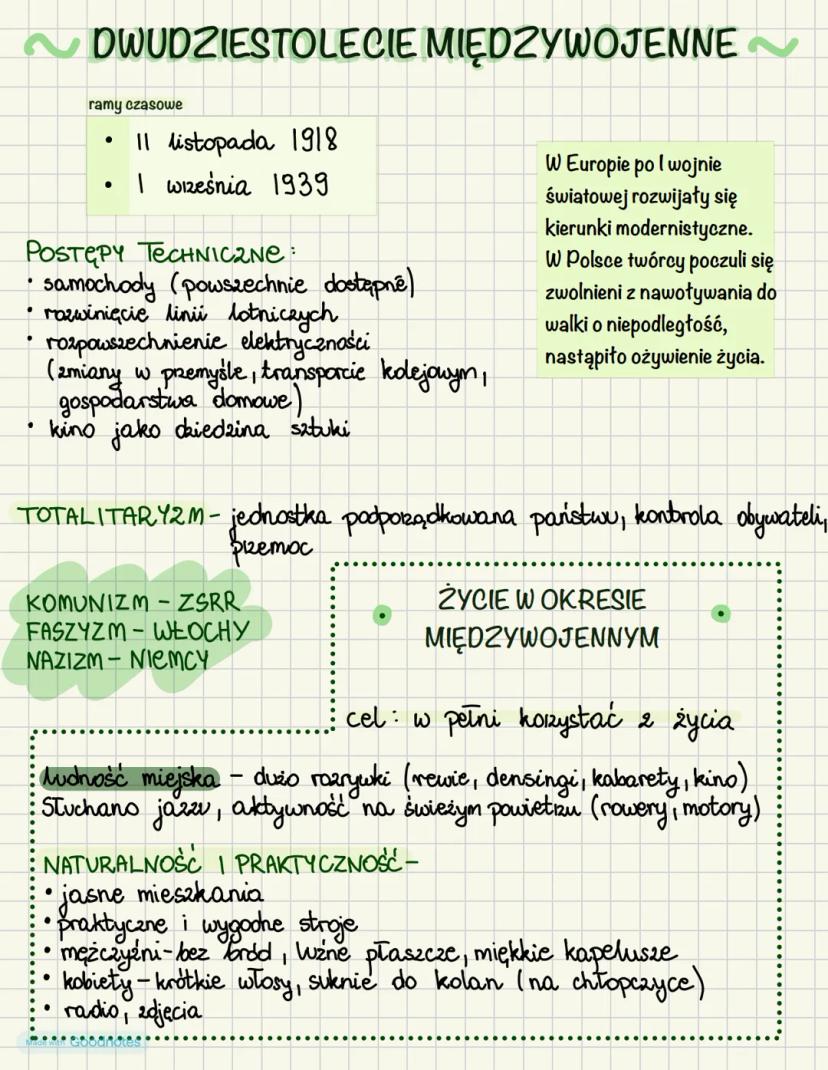 DWUDZIESTOLECIE MIĘDZYWOJENNE
ramy czasowe
• 11 listopada 1918
• 1 września 1939
W Europie po I wojnie
światowej rozwijały się
kierunki modernistyczne.
W Polsce twórcy poczuli się
zwolnieni z nawoływania do
walki o niepodległość,
nastąpiło ożywienie życia.
POSTĘPY TECHNICZNE:
• samochody (powszechnie dostępne)
• rozwinięcie linii lotniczych
• rozpowszechnienie elektryczności
(zmiany w przemyśle, transporcie kolejowym,
gospodarstwa domowe)
• kino jako dziedzina sztuki
TOTALITARYZM - jednostka podporządkowana państwu, kontrola obywateli,
przemoc
KOMUNIZM - ZSRR
FASZYZM - WŁOCHY
NAZIZM - NIEMCY
ŻYCIE W OKRESIE
MIĘDZYWOJENNYM
cel: w pełni korzystać z życia
ludność miejska - dużo rozrywki (rewie, densingi, kabarety, kino)
Słuchano jazzu, aktywność na świeżym powietrzu (rowery, motory)
NATURALNOŚĆ I PRAKTYCZNOŚĆ -
• jasne mieszkania
• praktyczne i wygodne stroje
• mężczyźni - bez bród, luźne płaszcze, miękkie kapelusze
• kobiety - krótkie włosy, suknie do kolan (na chłopczyce)
• radio, zdjęcia
Made with Goodnotes